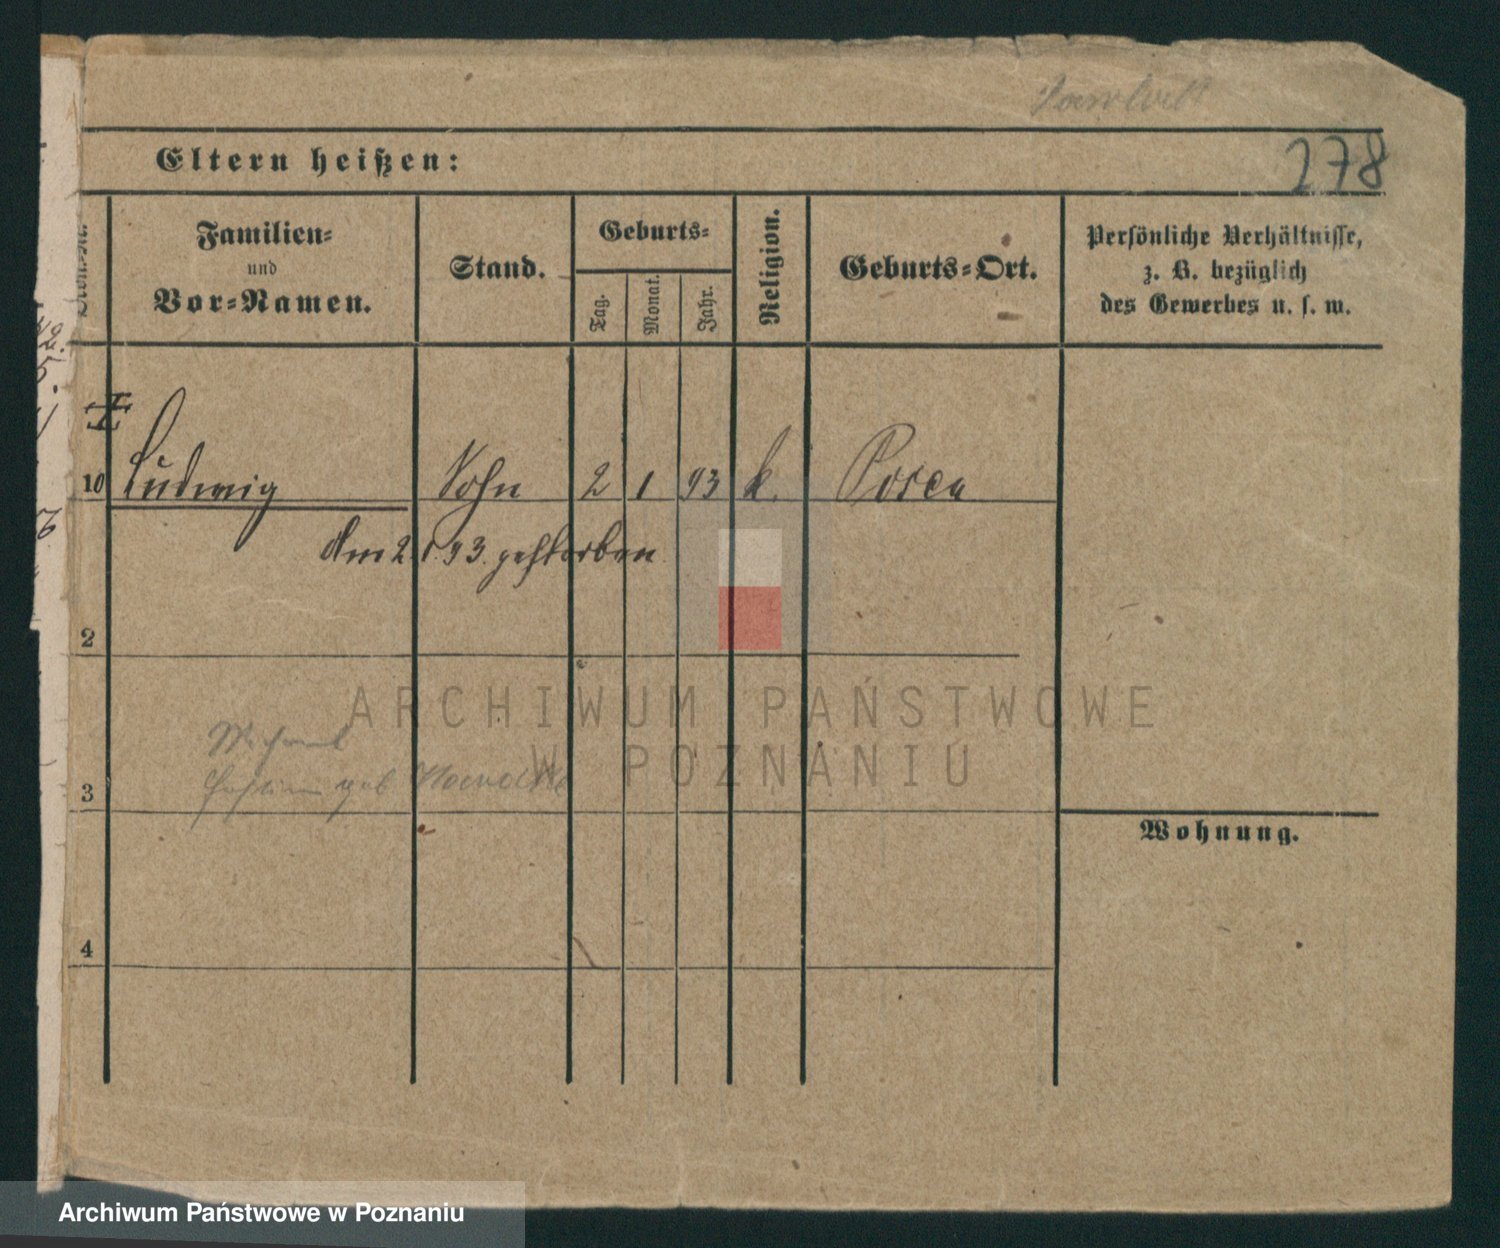 278
Eltern heißen:
Familien-
und
Vor-Namen.
Stand.
Geburts-
Tag.
Monat.
Jahr.
Religion.
Geburts-Ort.
Persönliche Verhältnisse,
z. B. bezüglich
des Gewerbes u. s. w.
10 Ludwig Sohn 2 1 93 k. Posen
Am 2.1.93. gestorben
2
ARCHIWUM PAŃSTWOWE
W POZNANIU
3
geb
Wohnung.
4
Archiwum Państwowe w Poznaniu